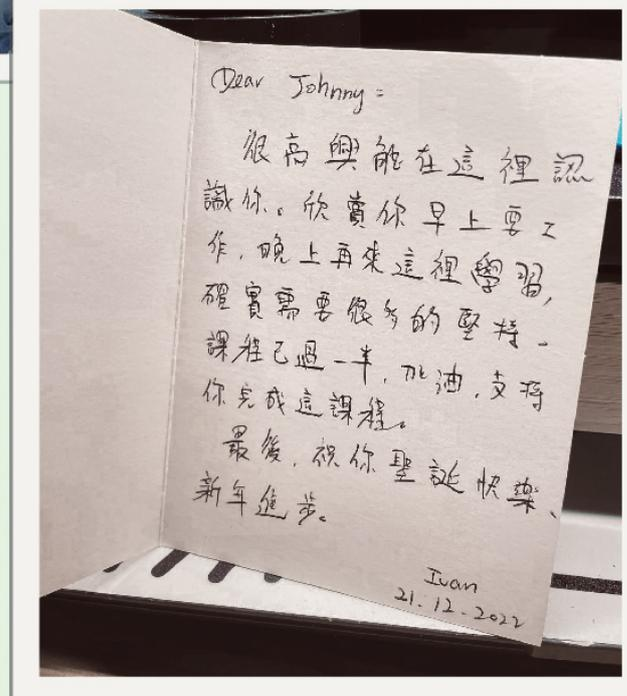 Dear Johnny:
很高興能在這裡認
識你。欣賞你早上要工
作,晚上再來這裡學習,
確實需要很多的堅持。
課程已過一半,加油,支持
你完成這課程。
最後,祝你聖誕快樂、
新年進步。
Ivan
21.12.2022